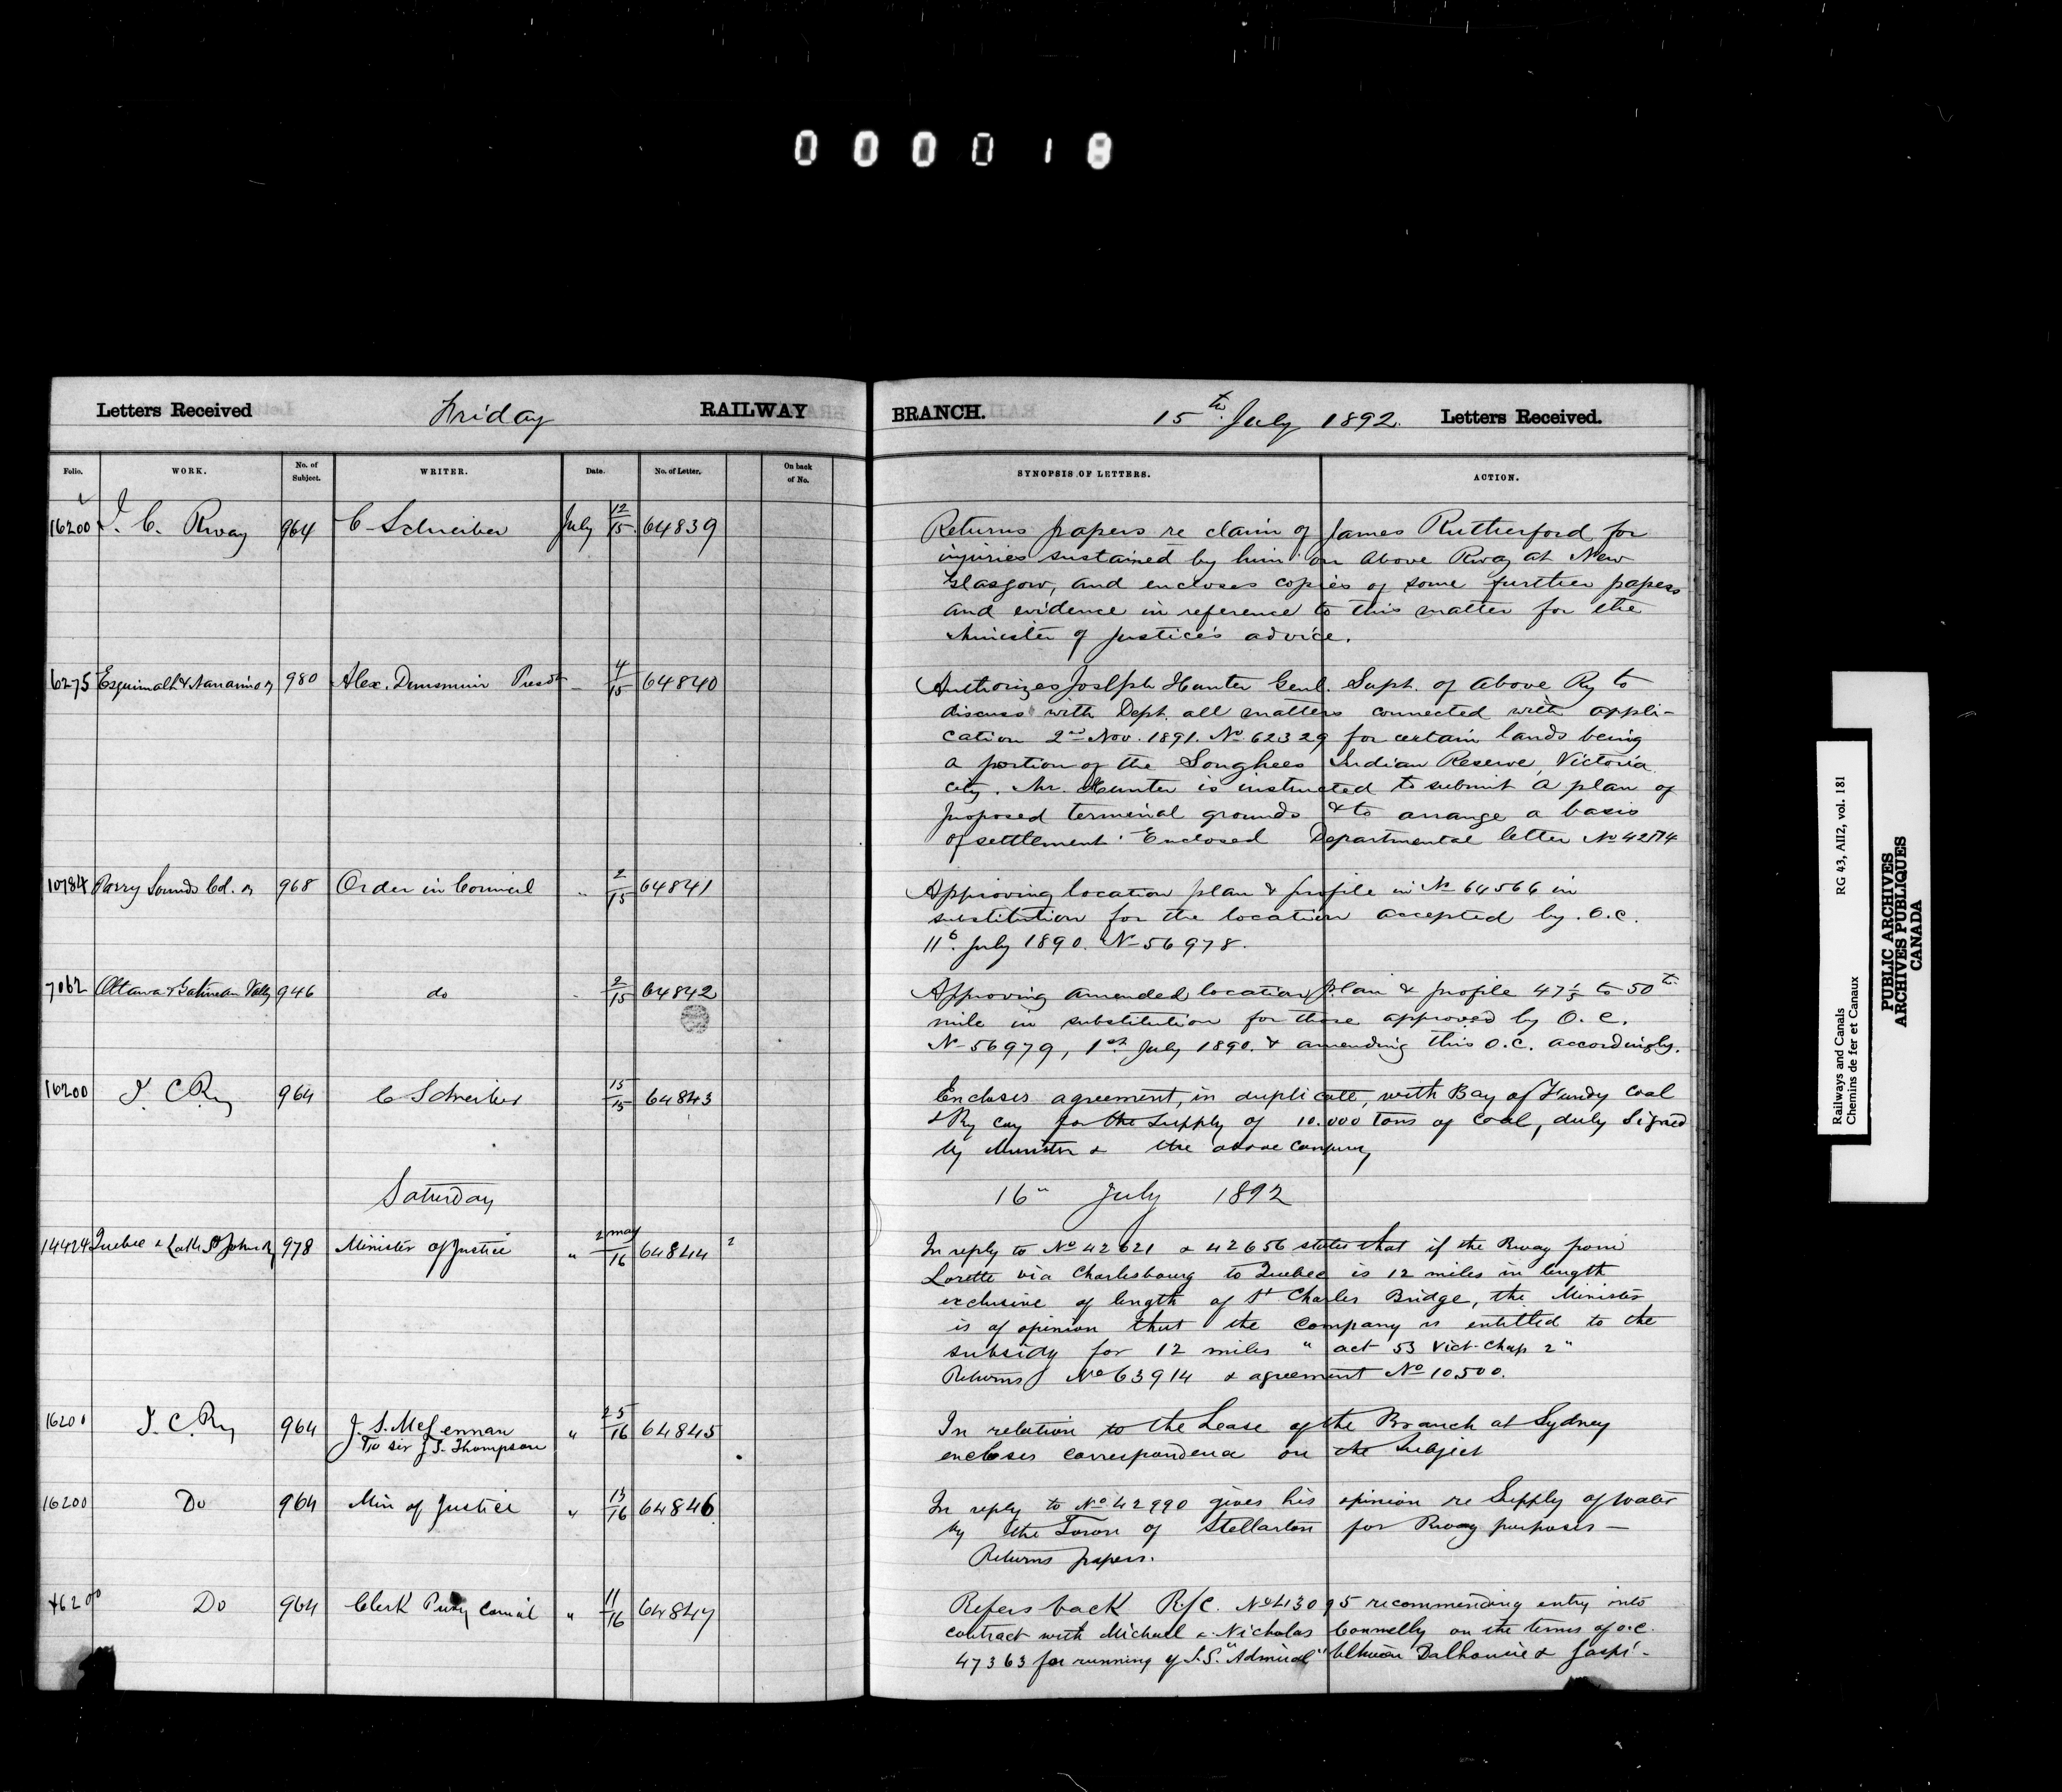 000018
Letters Received Friday RAILWAY BRANCH. 15th July 1892. Letters Received.
Folio. WORK. No. of Subject. WRITER. Date. No. of Letter. On back of No. SYNOPSIS OF LETTERS. ACTION.
16200 I. C. Rway 964 C Schreiber July 12/15 64839 Returns papers re claim of James Rutherford for
injuries sustained by him on above Rway at New
Glasgow, and encloses copies of some further papers
and evidence in reference to this matter for the
Minister of Justice's advice.
6275 Esquimalt & Nanaimo Ry 980 Alex. Dunsmuir Presdt 4/15 64840 Authorizes Joseph Hunter Genl. Supt. of above Ry to
discuss with Dept. all matters connected with appli-
cation 2nd Nov. 1891. No. 62329 for certain lands being
a portion of the Songhees Indian Reserve, Victoria
City. Mr. Hunter is instructed to submit a plan of
proposed terminal grounds & to arrange a basis
of settlement. Enclosed Departmental letter No
10784 Parry Sound Col. Ry 968 Order in Council " 2/15 64841 Approving location plan & profile in No 64566 in
substitution for the location accepted by O.C.
11th. July 1890. No 56978.
7062 Ottawa & Gatineau Vally 946 do " 2/15 64842 Approving amended location plan & profile 47 to 50th
mile in substitution for those approved by O.C.
No 56979, 1st July 1890. & amending this O.C. accordingly.
16200 I. C Ry 964 C Schreiber 15/15 64843 Encloses agreement, in duplicate, with Bay of Fundy Coal
& Ry Coy for the supply of 10.000 Tons of Coal, duly signed
by Minister & the above Company
Saturday 16" July 1892
14424 Quebec & Lake St John Ry 978 Minister of Justice " 2 May/16 64844 2 In reply to No 42621 & 42656 states that if the Rway from
Lorette via Charlesbourg to Quebec is 12 miles in length
exclusive of length of St Charles Bridge, the Minister
is of opinion that the Company is entitled to the
subsidy for 12 miles " act 53 Vict. Chap 2"
Returns No 63914 & agreement No 10.500.
16200 I. C. Ry 964 J. S. McLennan " 25/16 64845 In relation to the Lease of the Branch at Sydney
To Sir J. S. Thompson encloses correspondence on the subject
16200 Do 964 Min of Justice " 13/16 64846 In reply to No 42990 gives his opinion re Supply of water
by the Town of Stellarton for Rway purposes —
Returns papers.
16200 Do 964 Clerk Privy Council " 11/16 64847 Refers back R/C. No 43095 recommending entry into
contract with Michael & Nicholas Connelly on the terms of O.C.
47363 for running of S.S. "Admiral" between Dalhousie & Gaspé -
Railways and Canals RG 43, AII2, vol. 181
Chemins de fer et Canaux
PUBLIC ARCHIVES
ARCHIVES PUBLIQUES
CANADA